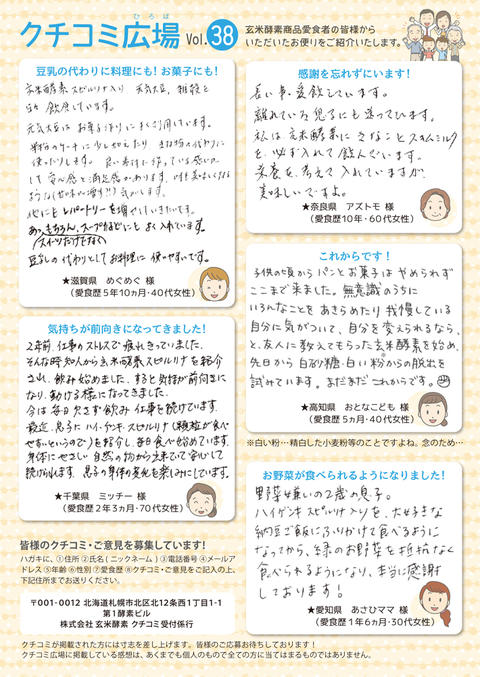 ひろば
クチコミ広場 Vol.38
玄米酵素商品愛食者の皆様から
いただいたお便りをご紹介いたします。
豆乳の代わりに料理にも!お菓子にも!
玄米酵素スピルリナ入り 元気大豆, 雑穀と
飲用しています。
元気大豆は お菓子作りに よく利用しています。
安心感と満足感があります。
スープなどにも よく入れています。
(スイーツだけでなく)
豆乳の代わりとしてお料理に使いやすいです。
★滋賀県 めぐめぐ 様
(愛食歴5年10ヵ月・40代女性)
気持ちが前向きになってきました!
2年前、仕事のストレスで疲れきっていました。
そんな時 知人から玄米酵素スピルリナを紹介
され、飲み始めました。すると気持が前向きに
なり、動ける様になってきました。
今は毎日欠さず飲み 仕事を続けています。
最近、息子に ハイ・ゲンキ スピルリナ(顆粒が食べ
やすいというので)を紹介し、毎日食べ始めています。
身体にやさしい 自然の物から出来ていて安心して
続けられます。息子の身体の変化を楽しみにしています。
★千葉県 ミッチー 様
(愛食歴2年3ヵ月・70代女性)
皆様のクチコミ・ご意見を募集しています!
ハガキに、①住所 ②氏名(ニックネーム)③電話番号 ④メールア
ドレス ⑤年齢 ⑥性別 ⑦愛食歴 ⑧クチコミ・ご意見をご記入の上、
下記住所までお送りください。
〒001-0012 北海道札幌市北区北12条西1丁目1-1
第1酵素ビル
株式会社 玄米酵素 クチコミ受付係行
感謝を忘れずにいます!
長い事、愛飲しています。
離れている児子にも送っています。
私は玄米酵素に きなことスキムミルク
を必ず入れて飲んでいます。
栄養を考えて入れていますが、
美味しいですよ。
★奈良県 アズトモ 様
(愛食歴10年・60代女性)
これからです!
子供の頃からパンとお菓子はやめられず
ここまで来ました。無意識のうちに
いろんなことをあきらめたり我慢している
自分に気がついて、自分を変えられるなら、
と、友人に教えてもらった玄米酵素を始め、
先日から 白砂糖・白い粉※からの脱出を
試みています。まだまだこれからです。
★高知県 おとなこども 様
(愛食歴5ヵ月・40代女性)
※白い粉…精白した小麦粉等のことですよね。念のため…
お野菜が食べられるようになりました!
野菜嫌いの2歳の息子。
ハイゲンキスピルリナ入りを、大好きな
納豆ご飯にふりかけて食べるように
なってから、緑のお野菜を抵抗なく
食べられるようになり、本当に感謝
しております!
★愛知県 あさひママ 様
(愛食歴1年6ヵ月・30代女性)
クチコミが掲載された方には寸志を差し上げます。皆様のご応募お待ちしております!
クチコミ広場に掲載している感想は、あくまでも個人のもので全ての方に当てはまるものではありません。